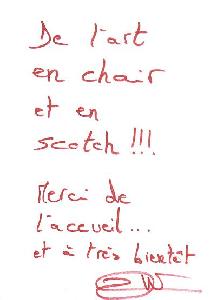 De l'art
en chair
et en
scotch !!!
Merci de
l'accueil...
et à très bientôt